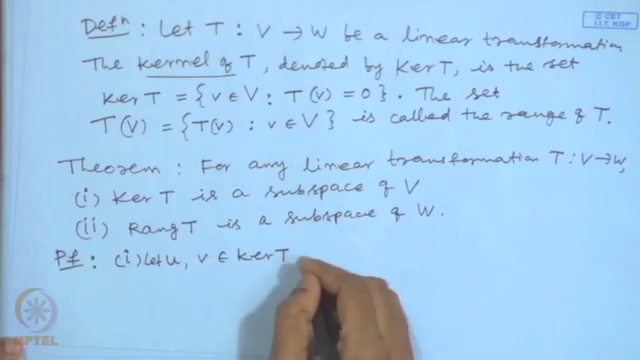 © CET
I.I.T. KGP
Defⁿ : Let T : V → W be a linear transformation
The kernel of T, denoted by Ker T, is the set
Ker T = {v ∈ V : T(v) = 0}. The set
T(V) = {T(v) : v ∈ V} is called the range of T.
Theorem : For any linear transformation T : V → W,
(i) Ker T is a subspace of V
(ii) Rang T is a subspace of W.
Pf : (i) Let u, v ∈ Ker T
NPTEL